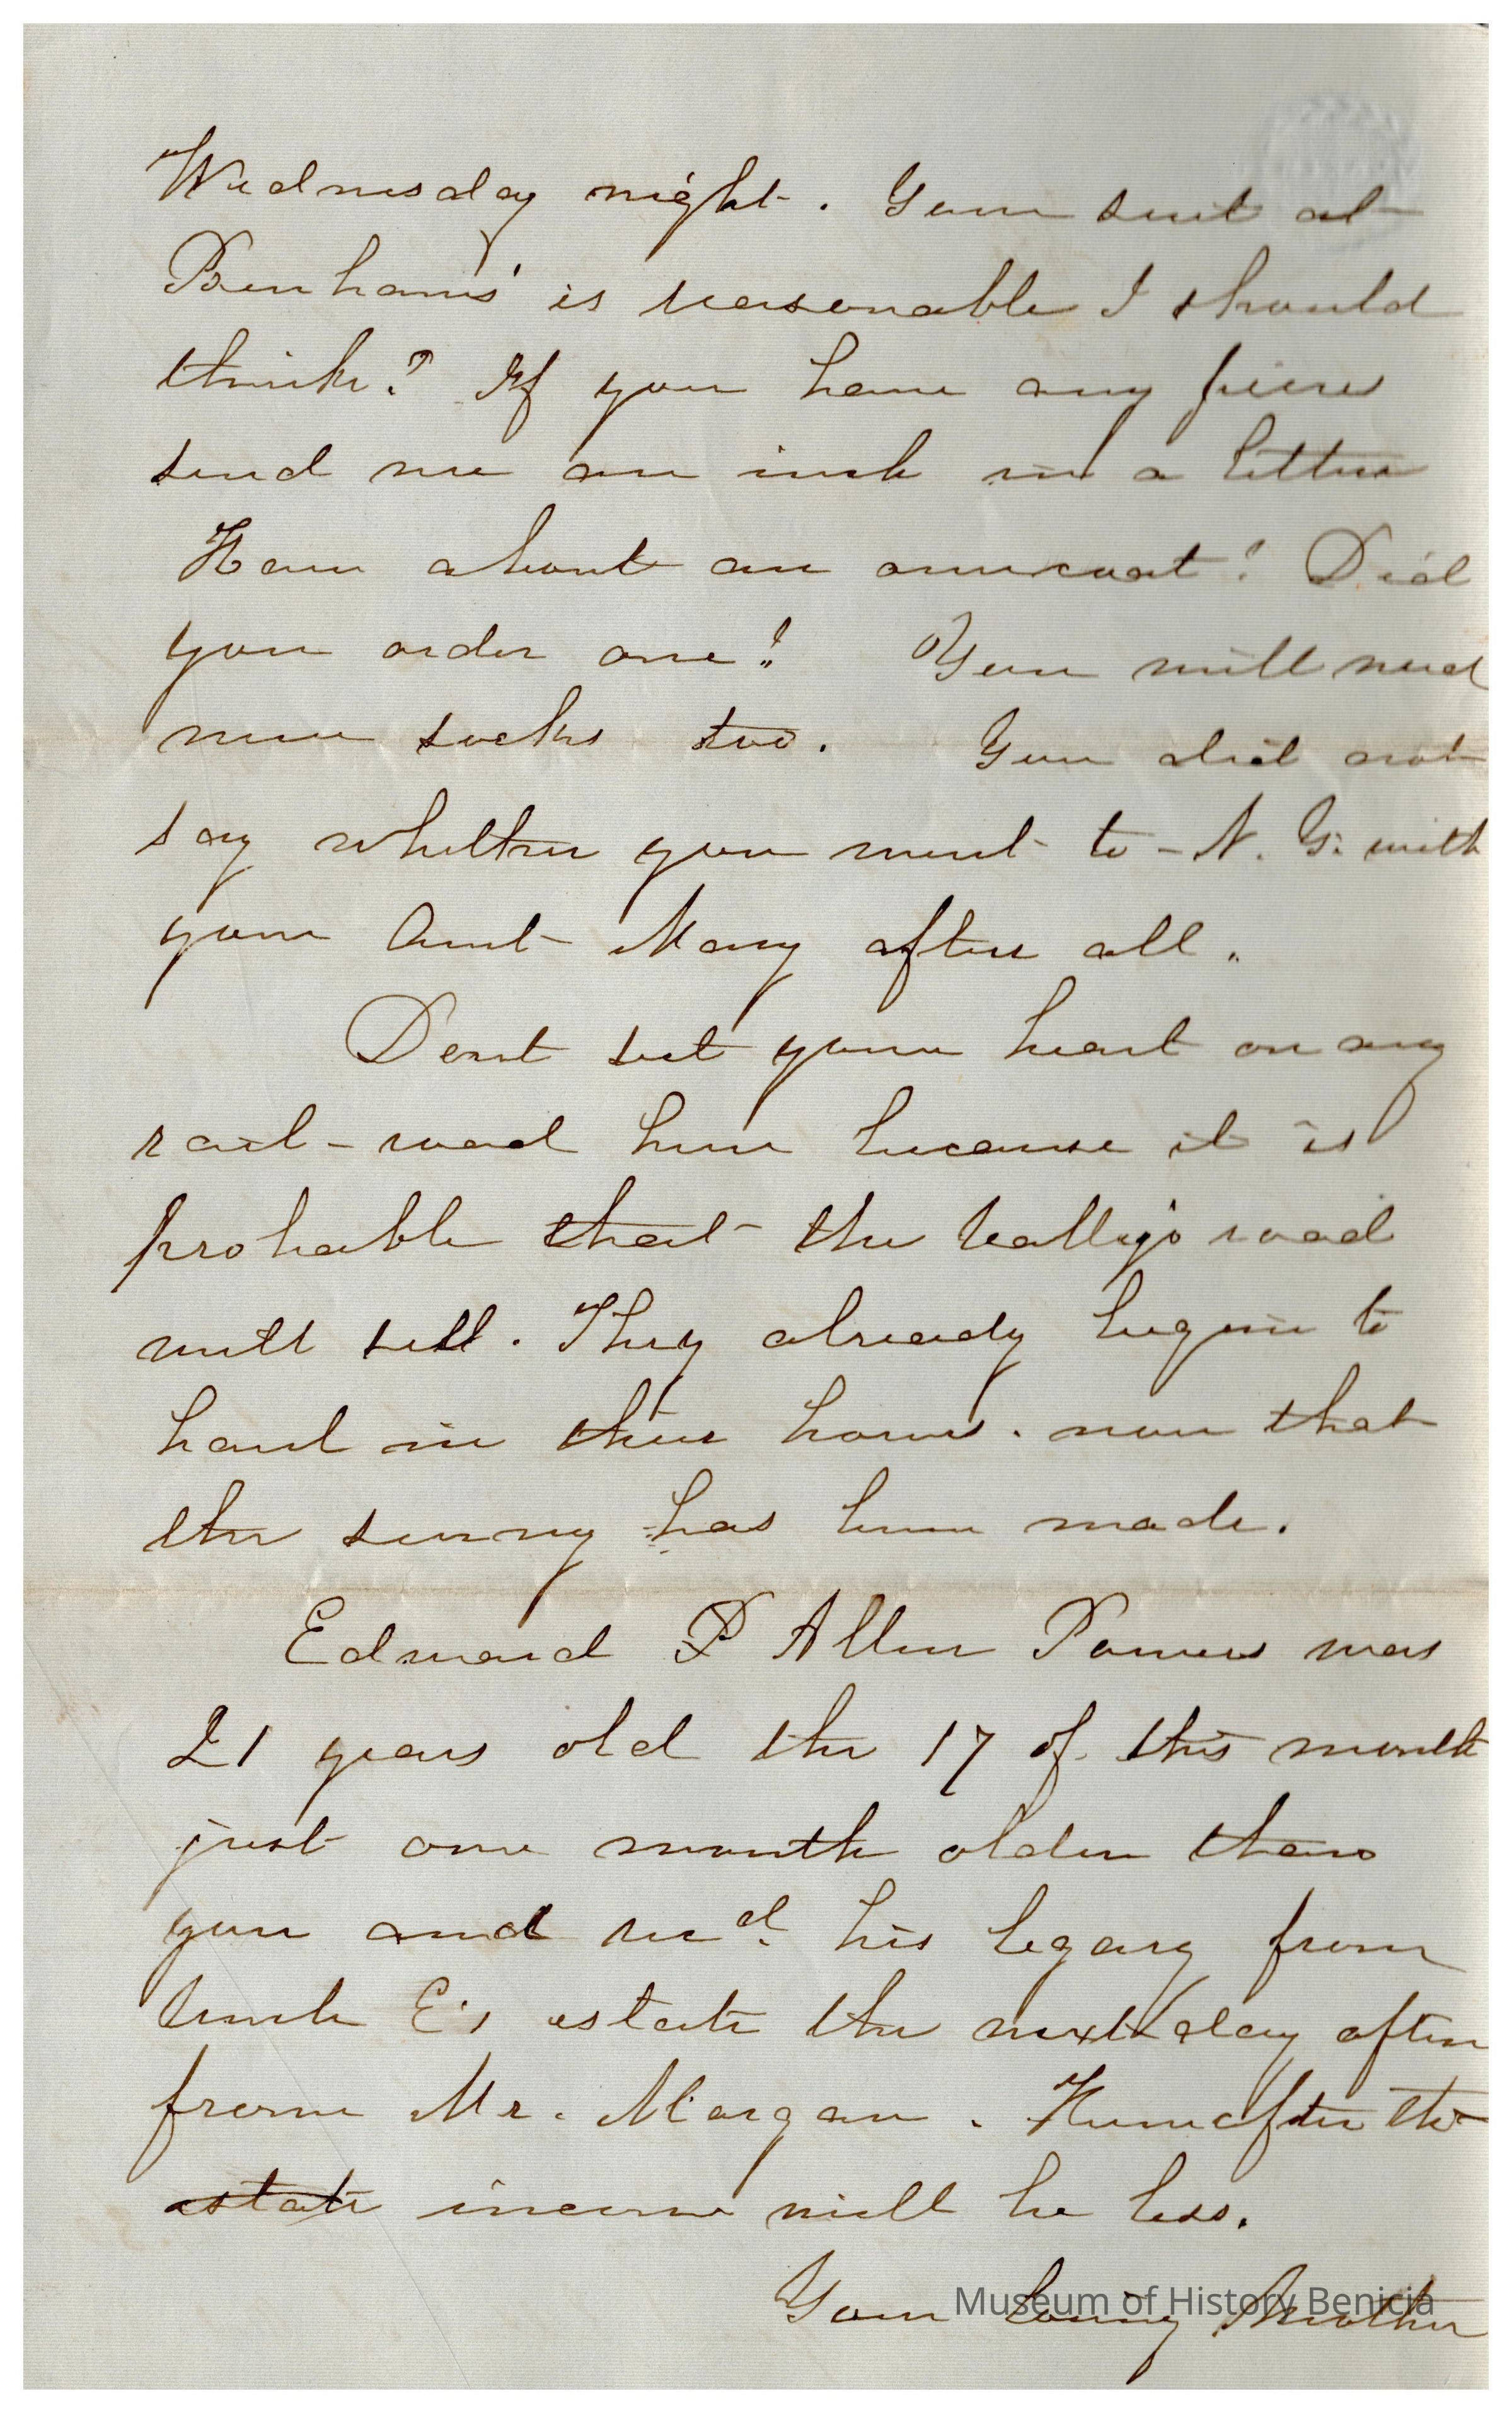 Wednesday night. Your suit at
Benhams' is reasonable I should
think? If you have any pieces
send me an inch in a letter
How about an overcoat? Did
you order one? You will need
new socks too. You did not
say whether you went to N. G. with
your Aunt Mary after all.
Dont set your heart on any
rail-road here because it is
probable that the Vallejo road
will sell. They already begin to
haul in their horns. now that
the survey has been made.
Edward P Allen Powers was
21 years old the 17 of this month
just one month older than
you and recd. his legacy from
Uncle E's estate the next day after
from Mr. Morgan. Hereafter the
estate income will be less.
Your loving Mother
Museum of History Benicia